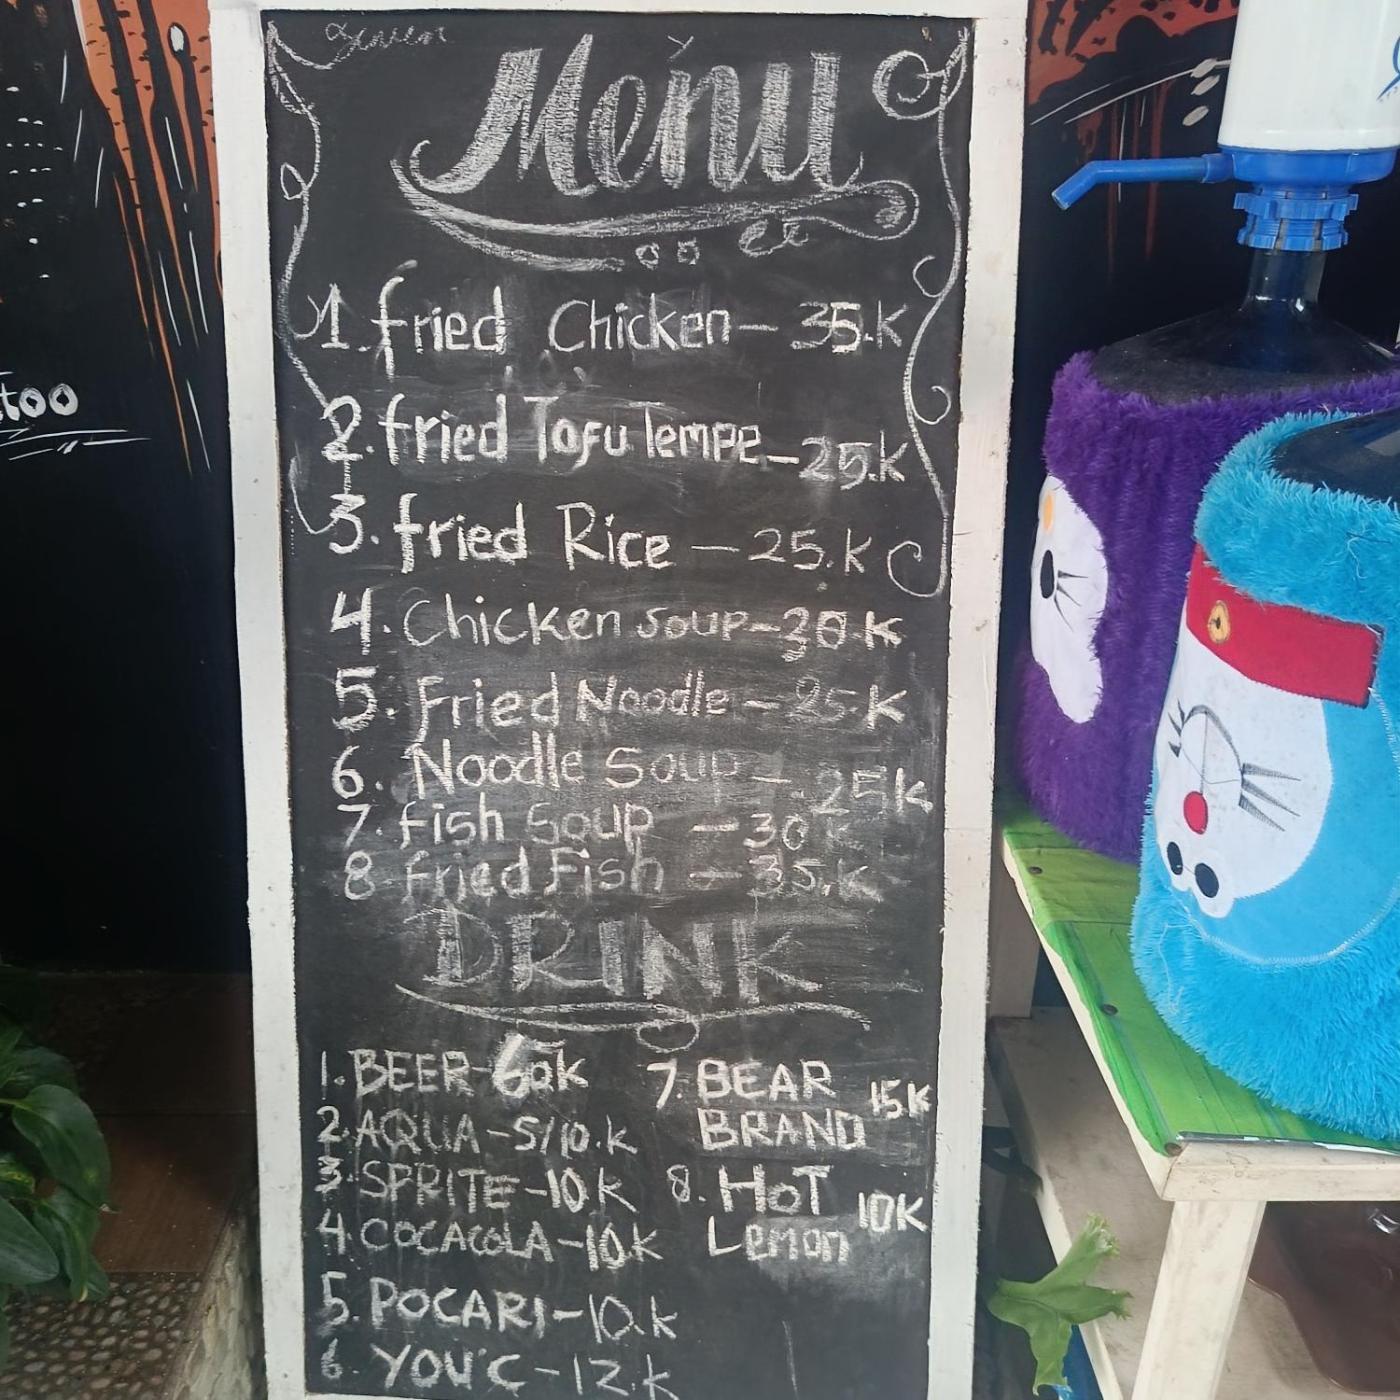 Menu
1. fried Chicken – 35.K
2. fried Tofu Tempe – 25.K
3. fried Rice – 25.K
4. Chicken soup – 30.K
5. Fried Noodle – 25.K
6. Noodle Soup – 25K
7. fish Soup – 30 K
8 fried Fish – 35.K
DRINK
1. BEER - 60K
2. AQUA - 5/10.K
3. SPRITE - 10.K
4. COCACOLA - 10.K
5. POCARI - 10.K
6. YOU'C - 12.K
7. BEAR
BRAND 15K
8. HOT
Lemon 10K
too